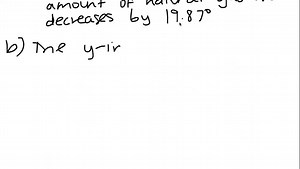 amount of natural
decreases by 19.87°
b) The y-in